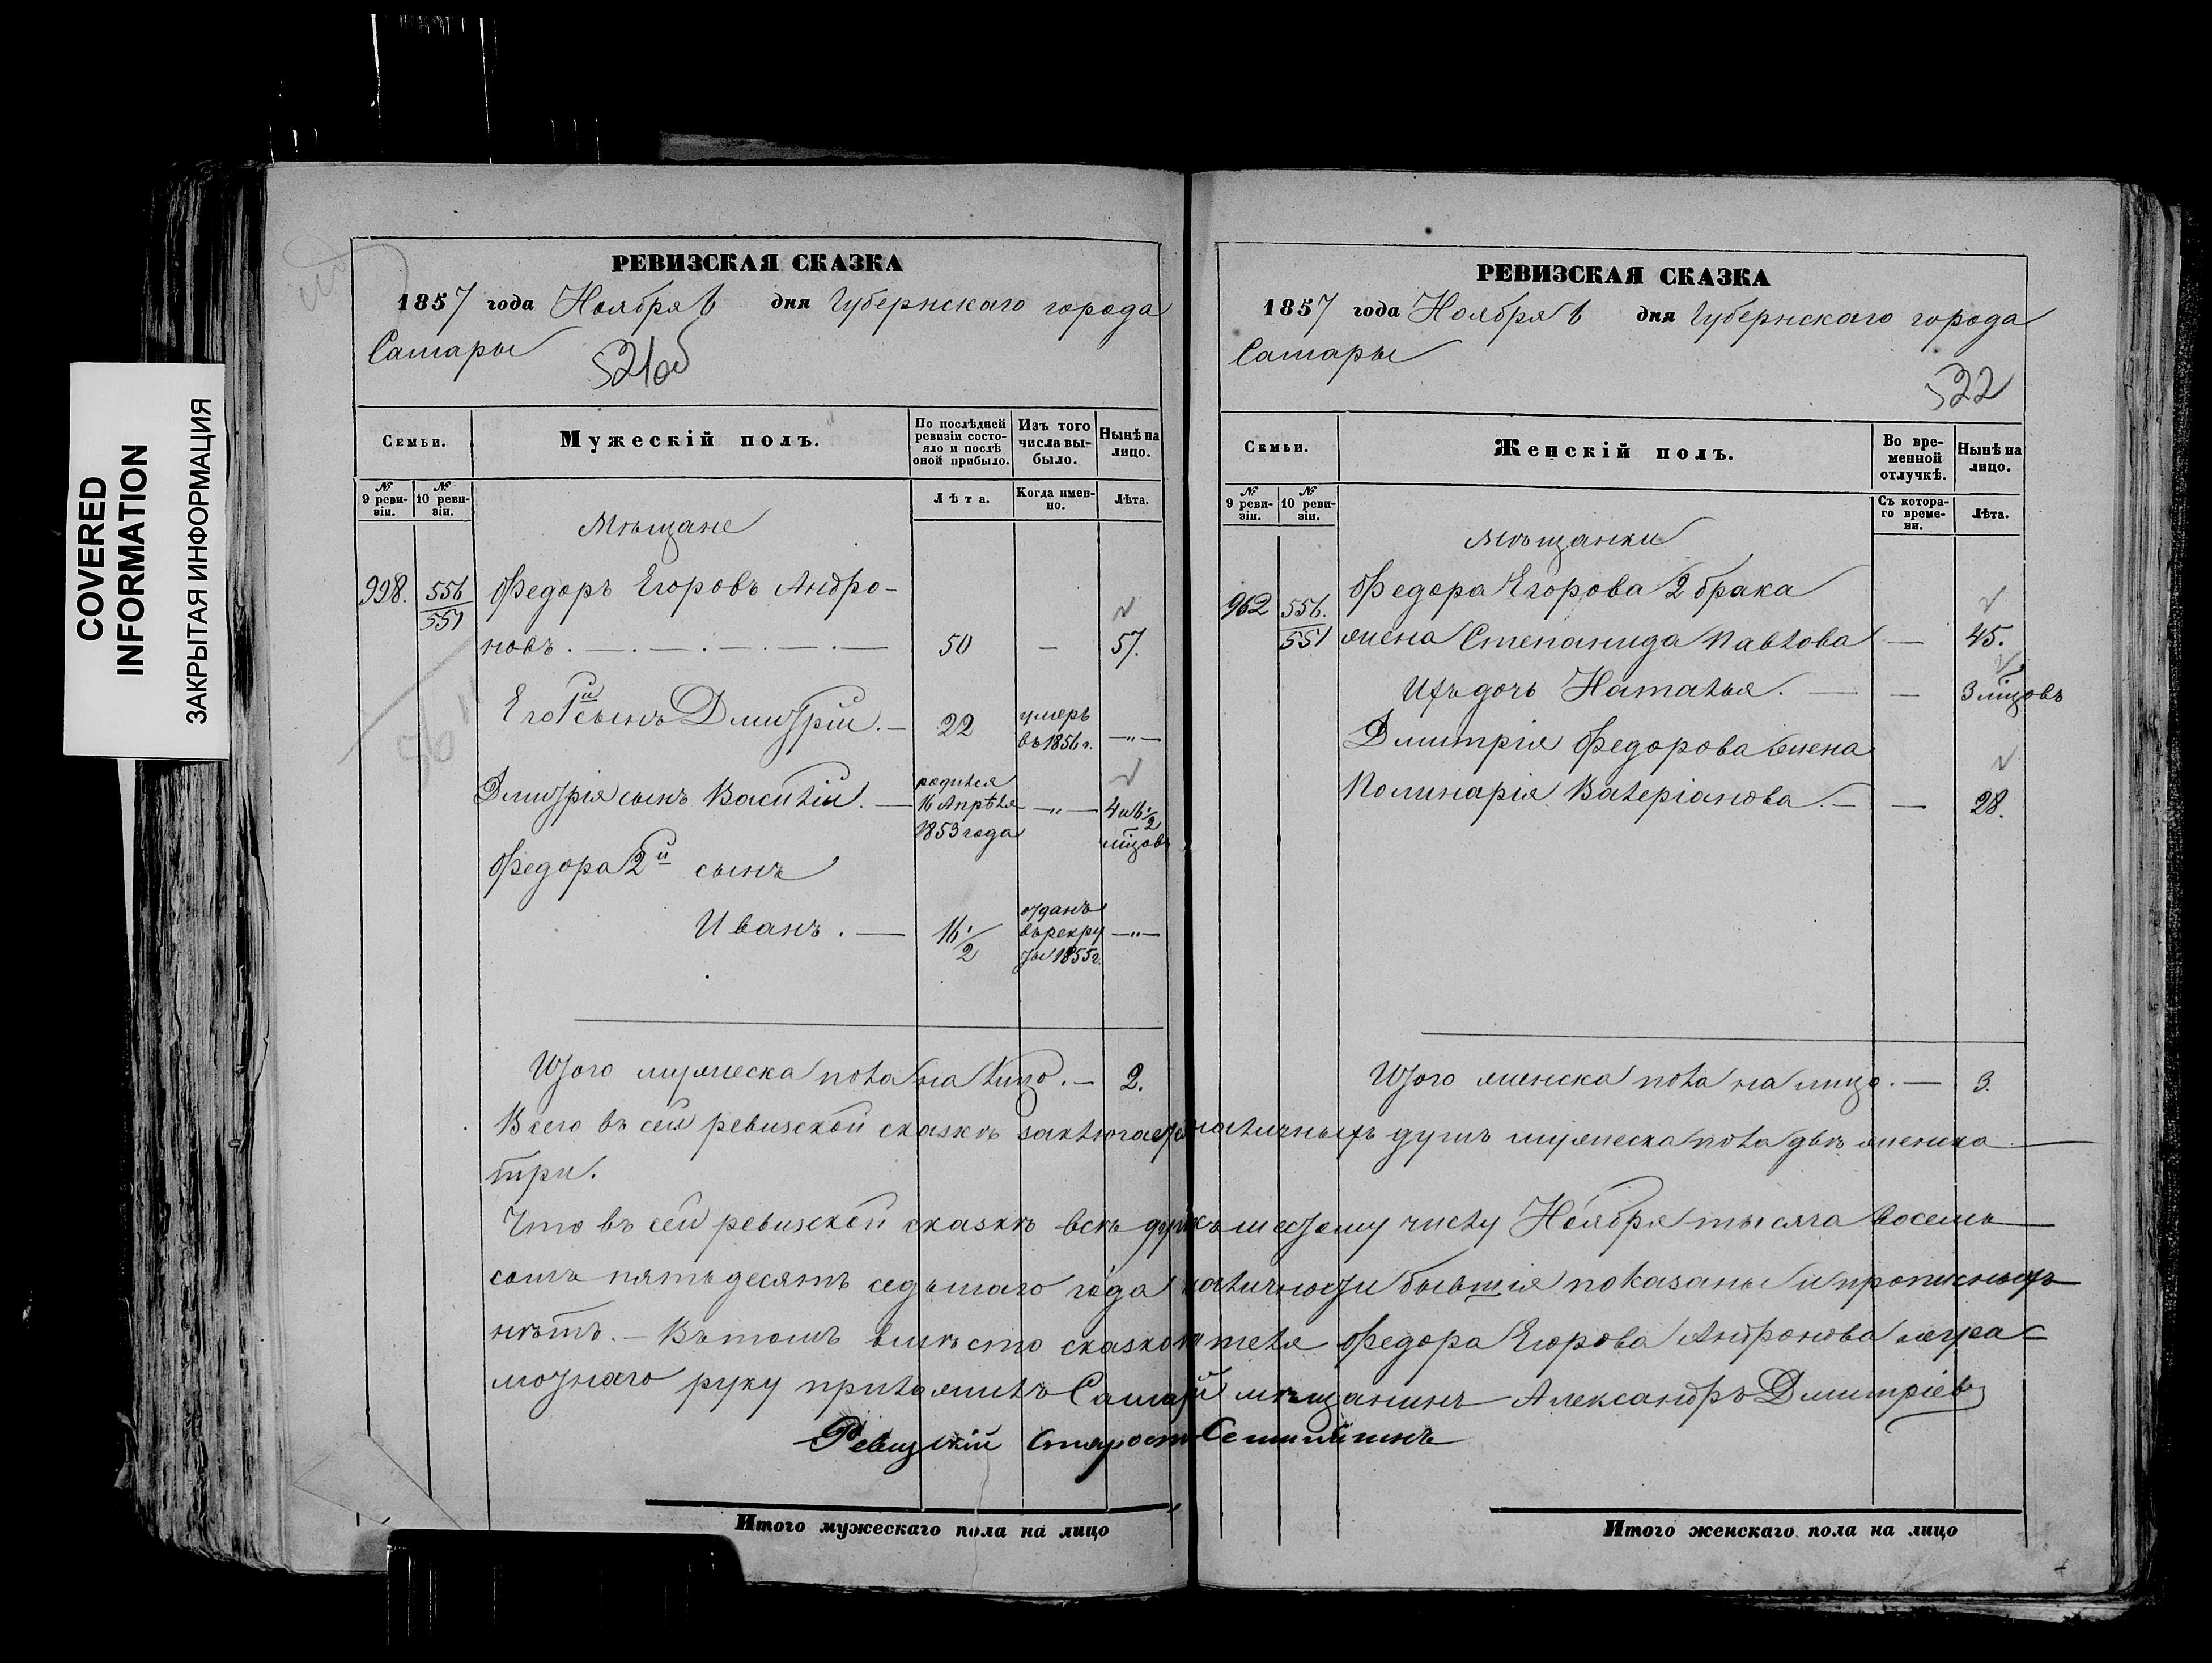 COVERED
INFORMATION
ЗАКРЫТАЯ ИНФОРМАЦИЯ
РЕВИЗСКАЯ СКАЗКА
1857 года Ноября 6 дня Губернскаго города
Самары
521об
Семьи.
Мужескій полъ.
По послѣдней ревизіи состояло и послѣ оной прибыло.
Изъ того числа выбыло.
Нынѣ на лицо.
№ 9 ревизіи.
№ 10 ревизіи.
Лѣта.
Когда именно.
Лѣта.
Мѣщане
998. 556 Федоръ Егоровъ Андро-
551
новъ. 50 — 57.
Его 1й сынъ Дмитрій. — 22 умеръ въ 1856 г. —"—
Дмитрія сынъ Василій. — родился 16 Апрѣля 1853 года —"— 4 и 6 1/2 мѣцовъ
Федора 2й сынъ
Иванъ. — 16 1/2 отданъ въ рекруты 1855 г. —"—
Итого мужеска пола на лицо. — 2.
РЕВИЗСКАЯ СКАЗКА
1857 года Ноября 6 дня Губернскаго города
Самары
522
Семьи.
Женскій полъ.
Во временной отлучкѣ.
Нынѣ на лицо.
№ 9 ревизіи.
№ 10 ревизіи.
Съ котораго времени.
Лѣта.
Мѣщанки
962 556. Федора Егорова 2 брака
551 жена Степанида Павлова — 45.
Ихъ дочь Наталья. — — 3 мѣцовъ
Дмитрія Федорова жена
Полинарія Валеріанова. — — 28.
Итого женска пола на лицо. — 3.
Всего въ сей ревизской сказкѣ заключается наличныхъ душъ мужеска пола двѣ женска
три.
Что въ сей ревизской сказкѣ всѣ душ къ шестому числу Ноября тысяча восемь
сотъ пятьдесятъ седьмаго года наличности бывшія показаны и прописныхъ
нѣтъ. — Въ томъ вмѣсто сказкоптеля Федора Егорова Андронова негра=
мотнаго руку приложилъ Самарй мѣщанинъ Александръ Дмитріевъ
Ревизскій Старост
Итого мужескаго пола на лицо
Итого женскаго пола на лицо